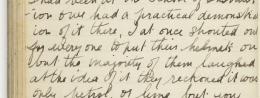 ion ours had a practical demonstrat
ion of it there, I at once shouted out
for every one to put their helmets on
but the majority of them laughed
at the idea of it they reckoned it was
only petrol or lime but you